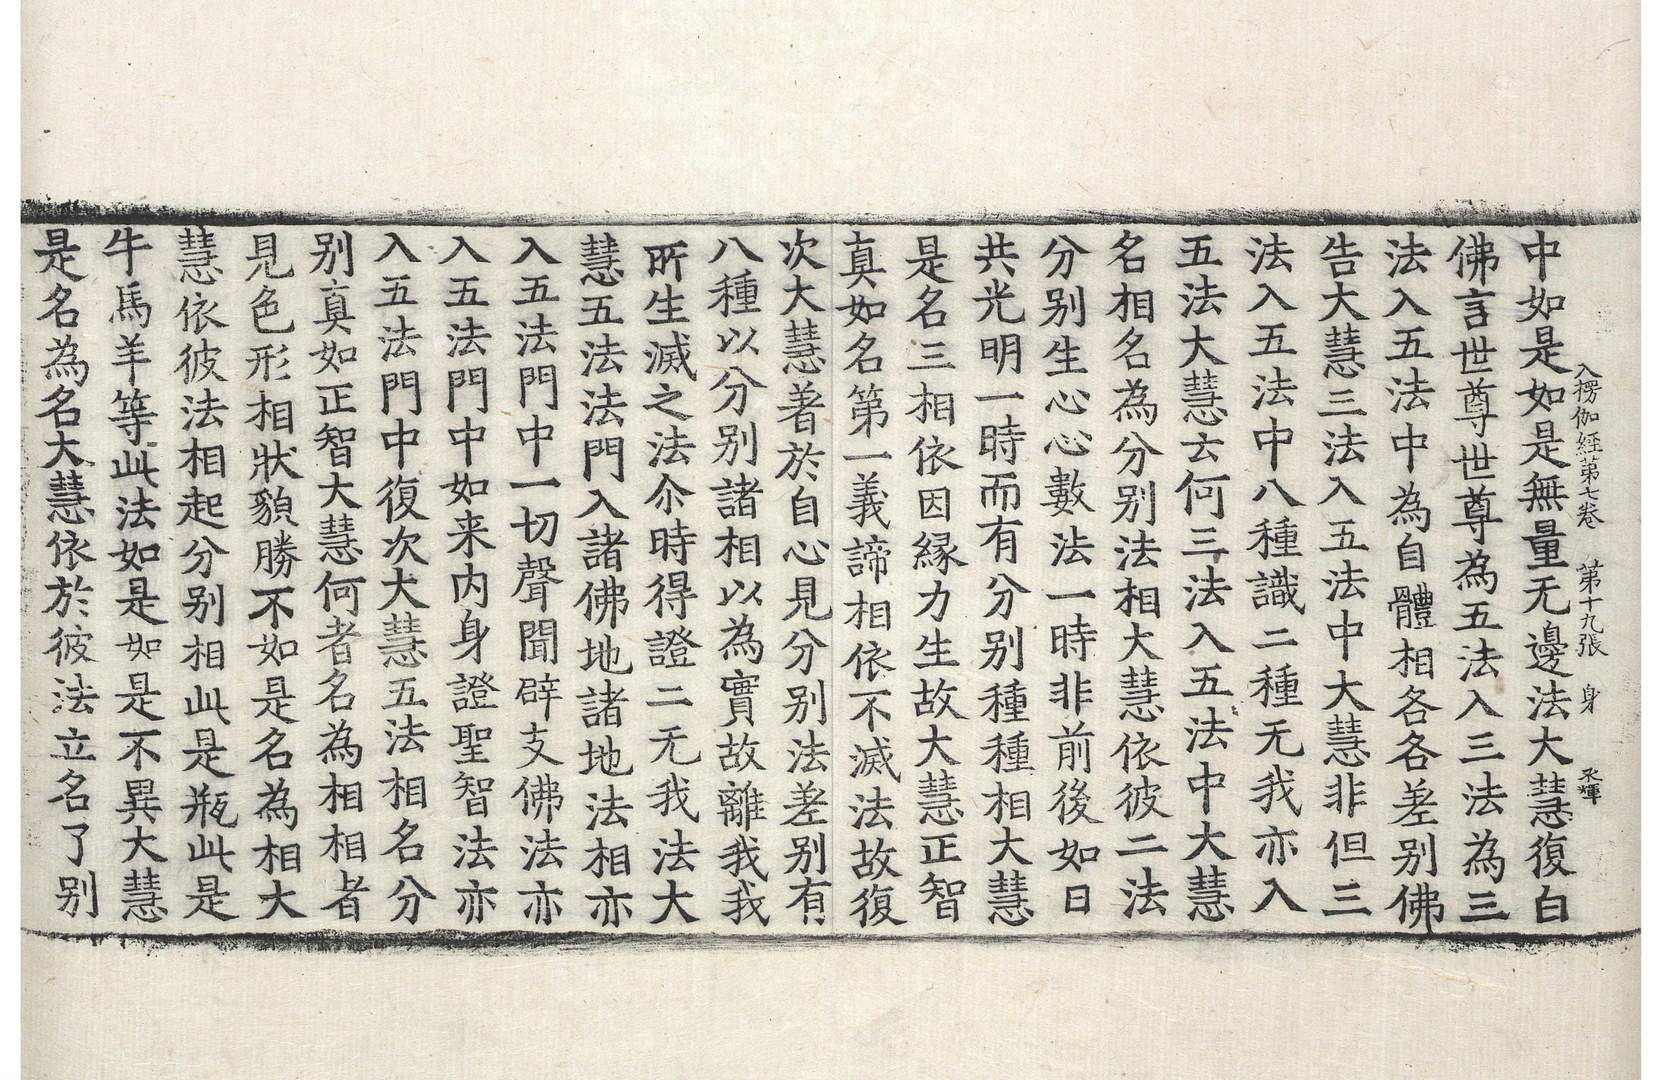 入楞伽經第七卷 第十九張 身 永暉
中如是如是無量无邊法大慧復白
佛言世尊世尊為五法入三法為三
法入五法中為自體相各各差別佛
告大慧三法入五法中大慧非但三
法入五法中八種識二種无我亦入
五法大慧云何三法入五法中大慧
名相名為分别法相大慧依彼二法
分别生心心數法一時非前後如日
共光明一時而有分别種種相大慧
是名三相依因縁力生故大慧正智
真如名第一義諦相依不滅法故復
次大慧著於自心見分别法差别有
八種以分别諸相以為實故離我我
所生滅之法尒時得證二无我法大
慧五法法門入諸佛地諸地法相亦
入五法門中一切聲聞辟支佛法亦
入五法門中如来内身證聖智法亦
入五法門中復次大慧五法相名分
别真如正智大慧何者名為相相者
見色形相狀貌勝不如是名為相大
慧依彼法相起分别相此是瓶此是
牛馬羊等此法如是如是不異大慧
是名為名大慧依於彼法立名了别